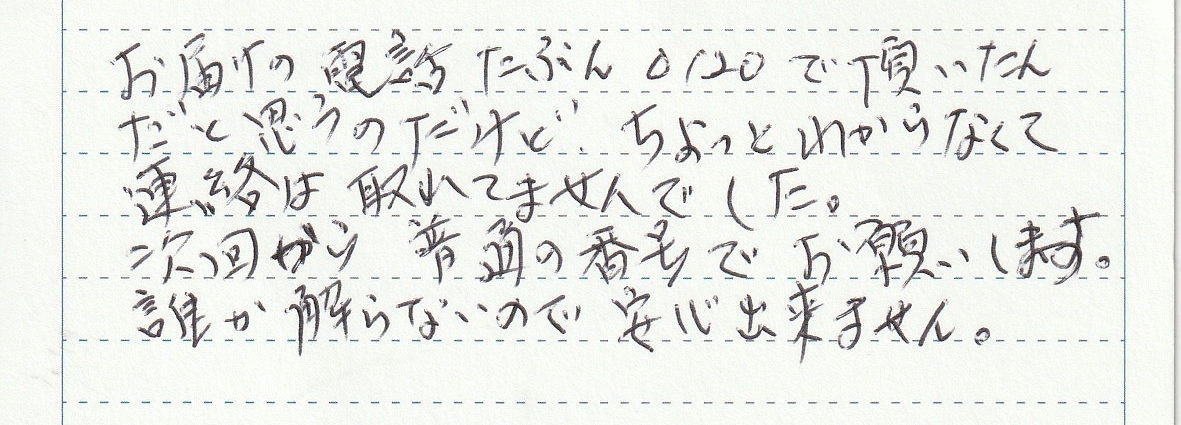 お届けの電話たぶん0120で頂いたん
だと思うのだけど、ちょっとわからなくて
連絡は取れてませんでした。
次回から普通の番号でお願いします。
誰か解らないので安心出来ません。